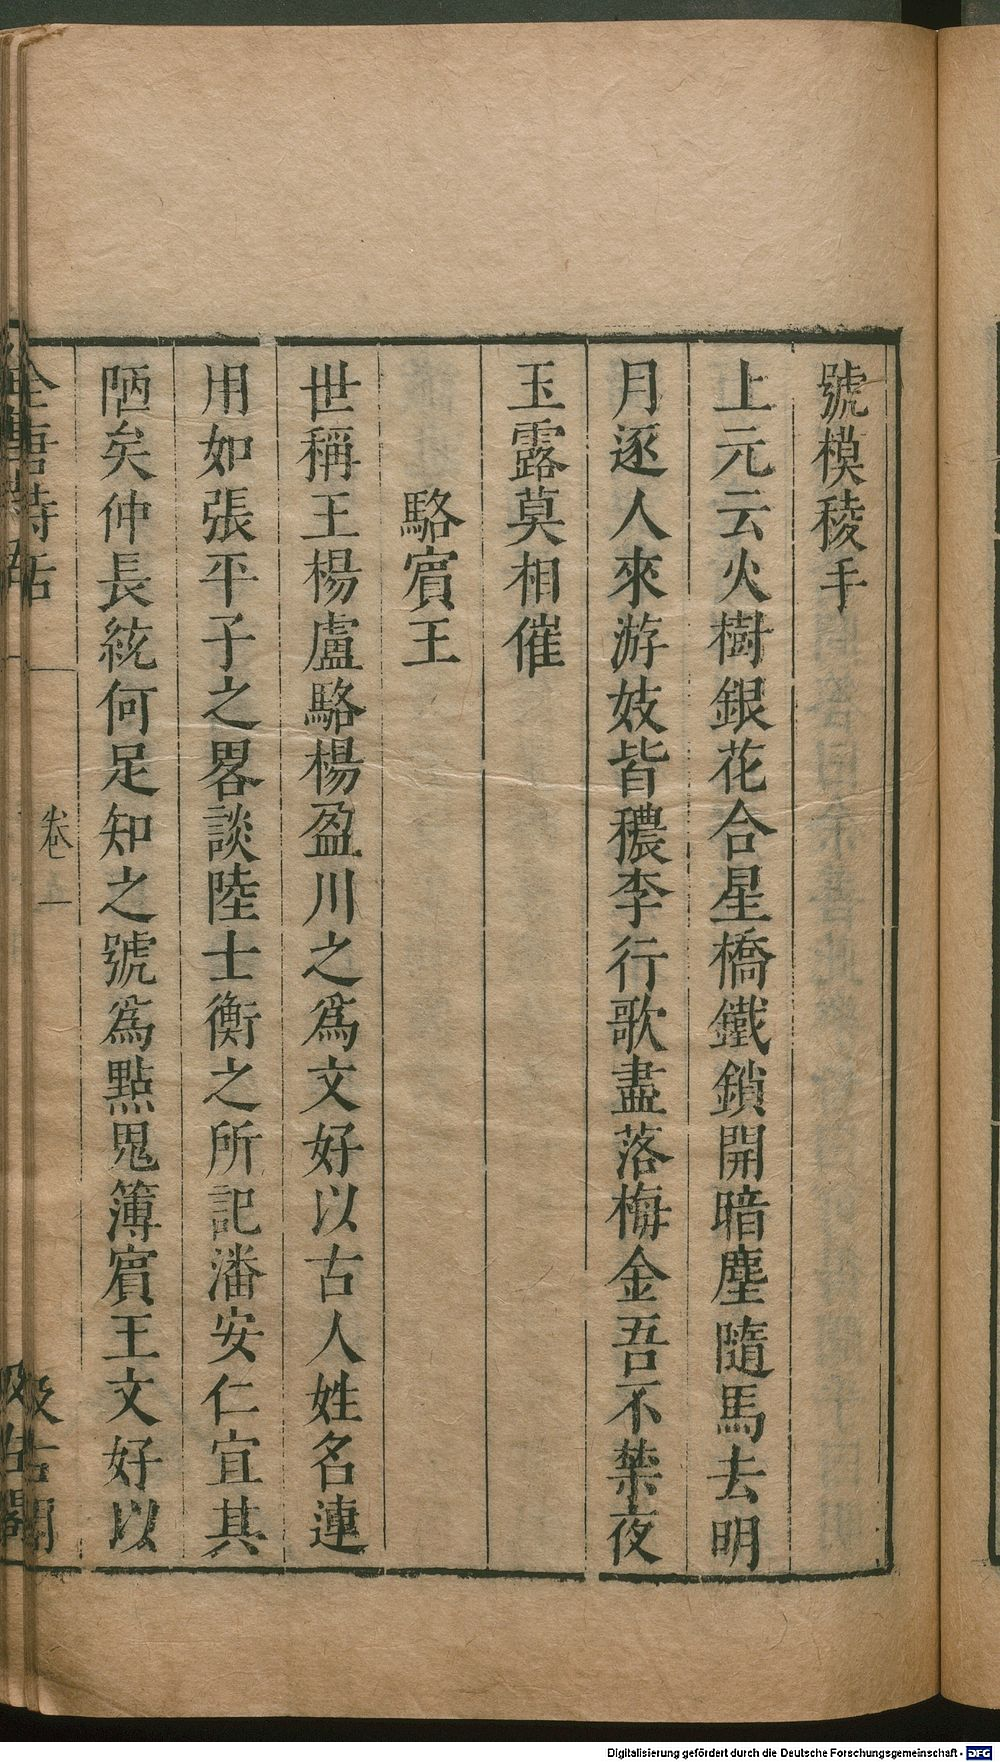 號模稜手
上元云火樹銀花合星橋鐵鎖開暗塵隨馬去明
月逐人來游妓皆穠李行歌盡落梅金吾不禁夜
玉露莫相催
駱賔王
世稱王楊盧駱楊盈川之爲文好以古人姓名連
用如張平子之畧談陸士衡之所記潘安仁宜其
陋矣仲長統何足知之號爲點鬼簿賔王文好以
全唐詩話
卷五
汲古閣
Digitalisierung gefördert durch die Deutsche Forschungsgemeinschaft - DFG